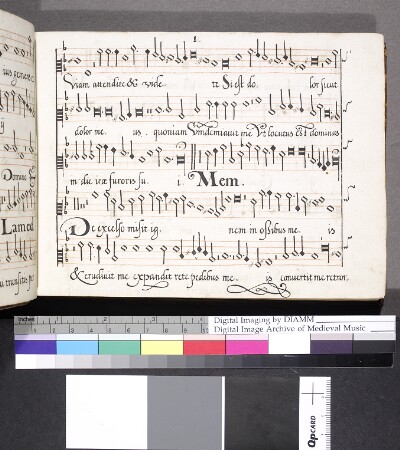 1.
viam attendite & vide te Si est do lor sicut
dolor me us. quoniam Vindemiauit me Vt locutus est dominus
in die iræ furoris su i. Mem.
De excelso misit ig nem in ossibus me. is
& erudiuit me expandit rete pedibus me. is conuertit me retror.
Domine
Lamed
Inches 1 2 3 4
Digital Imaging by DIAMM
Digital Image Archive of Medieval Music
QPCARD